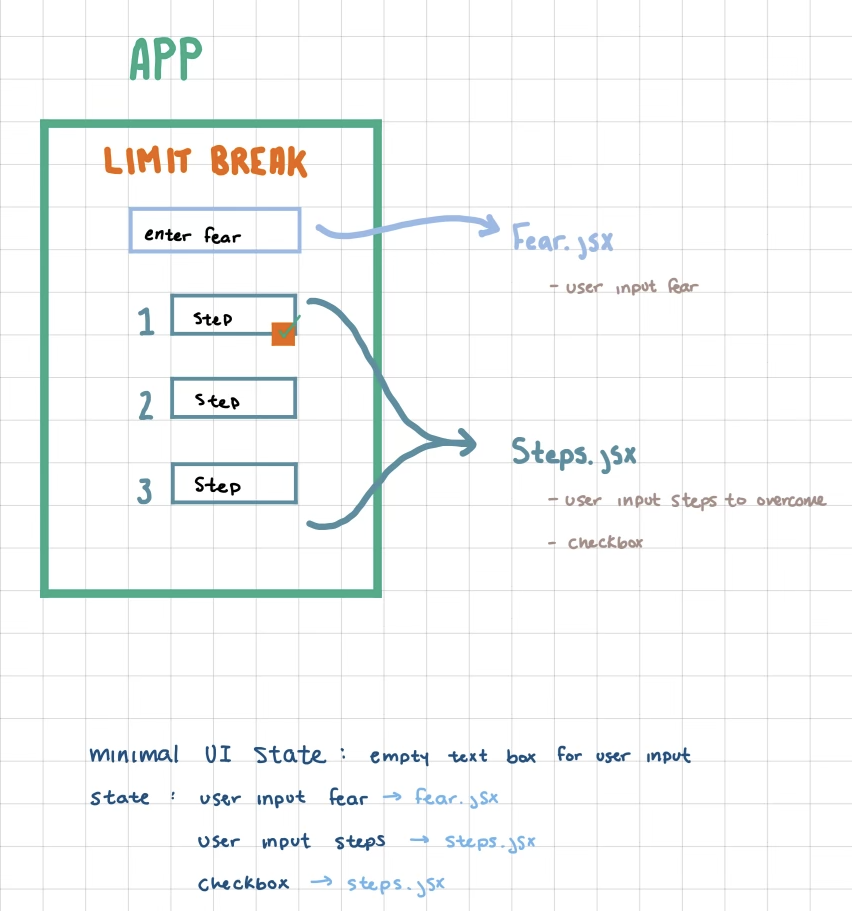 APP
LIMIT BREAK
enter fear
Fear.jsx
- user input fear
1 Step
2 Step
3 Step
Steps.jsx
- user input steps to overcome
- checkbox
minimal UI state : empty text box for user input
state : user input fear → fear.jsx
user input steps → steps.jsx
checkbox → steps.jsx